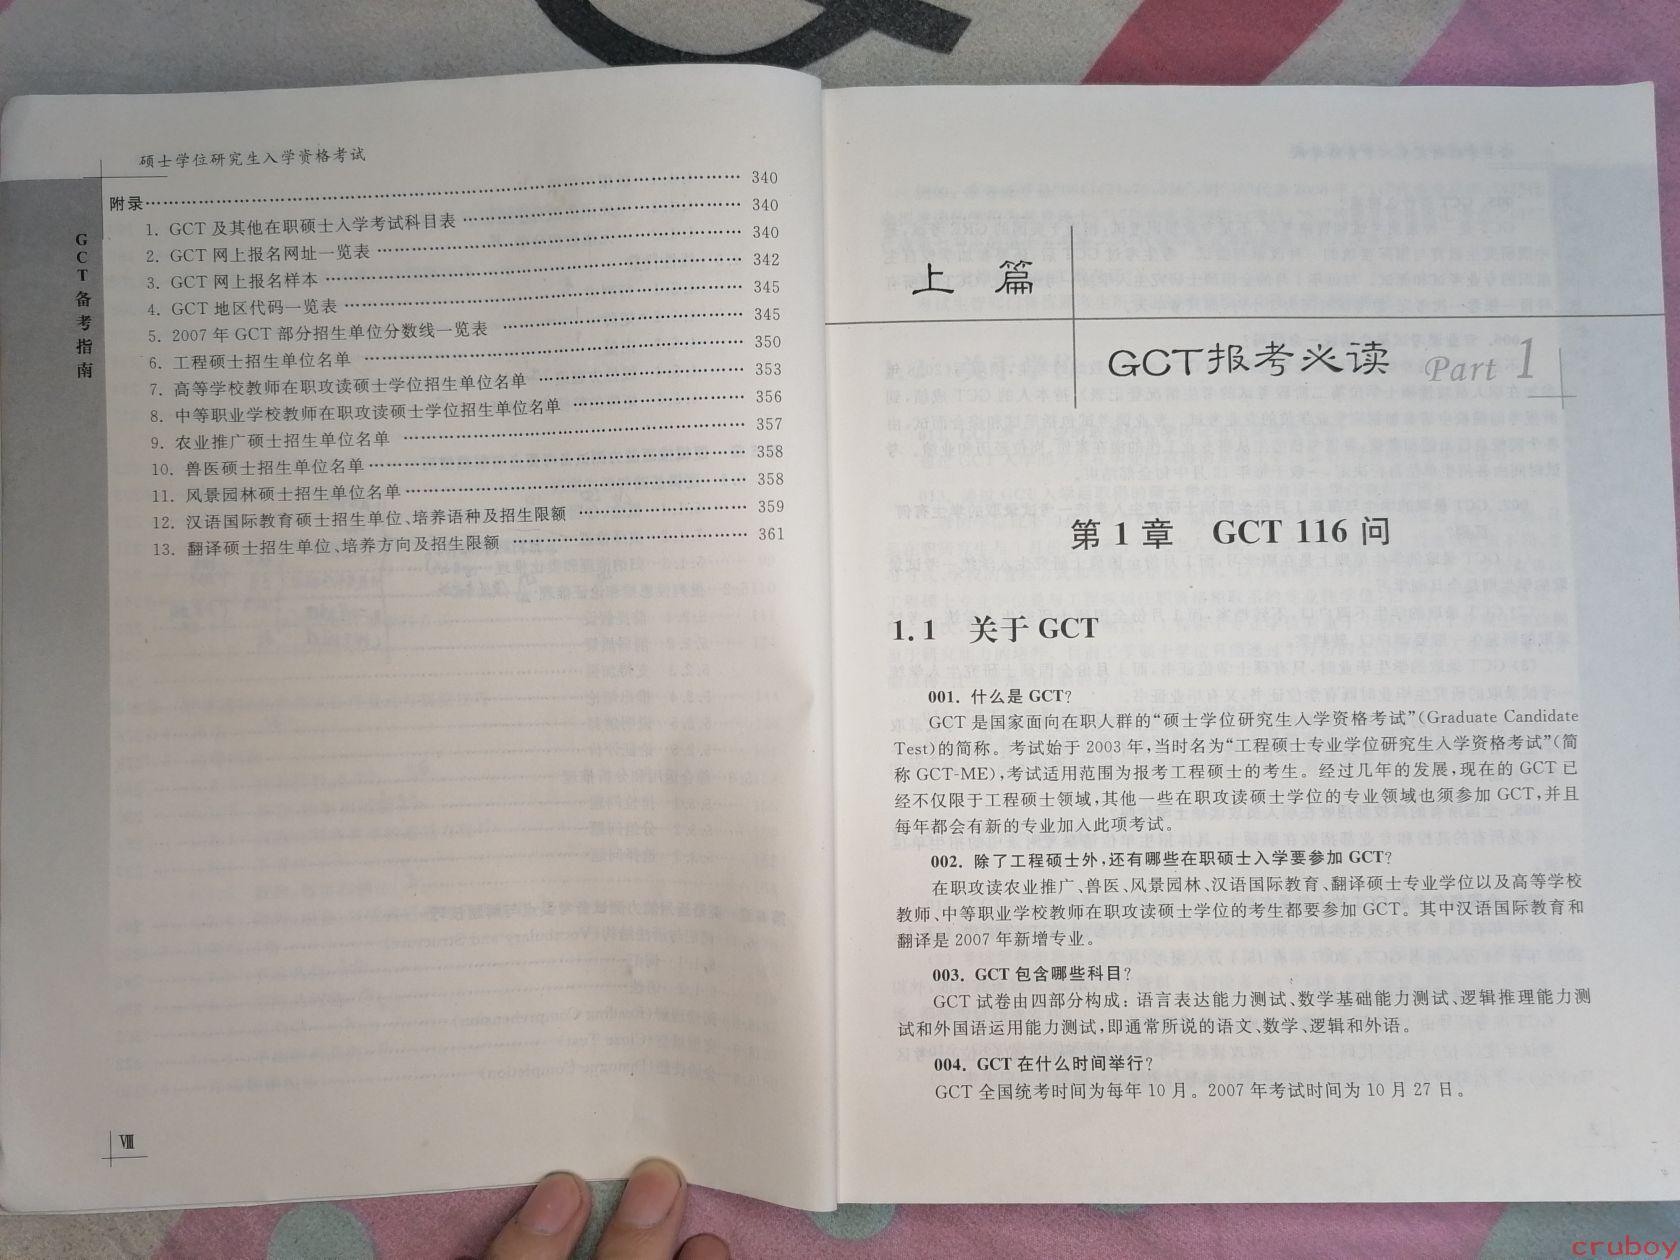 硕士学位研究生入学资格考试
GCT备考指南
附录……………………………………………………………… 340
1. GCT 及其他在职硕士入学考试科目表 ……………………………… 340
2. GCT 网上报名网址一览表 ……………………………………… 340
3. GCT 网上报名样本 ……………………………………………… 342
4. GCT 地区代码一览表 …………………………………………… 345
5. 2007 年 GCT 部分招生单位分数线一览表 ………………………… 345
6. 工程硕士招生单位名单 ………………………………………… 350
7. 高等学校教师在职攻读硕士学位招生单位名单 …………………… 353
8. 中等职业学校教师在职攻读硕士学位招生单位名单 ……………… 356
9. 农业推广硕士招生单位名单 …………………………………… 357
10. 兽医硕士招生单位名单………………………………………… 358
11. 风景园林硕士招生单位名单 …………………………………… 358
12. 汉语国际教育硕士招生单位、培养语种及招生限额 ……………… 359
13. 翻译硕士招生单位、培养方向及招生限额 ……………………… 361
Ⅷ
上 篇
GCT报考必读 Part 1
第 1 章 GCT 116 问
1.1 关于 GCT
001. 什么是 GCT?
GCT 是国家面向在职人群的“硕士学位研究生入学资格考试”(Graduate Candidate
Test)的简称。考试始于 2003 年,当时名为“工程硕士专业学位研究生入学资格考试”(简
称 GCT-ME),考试适用范围为报考工程硕士的考生。经过几年的发展,现在的 GCT 已
经不仅限于工程硕士领域,其他一些在职攻读硕士学位的专业领域也须参加 GCT,并且
每年都会有新的专业加入此项考试。
002. 除了工程硕士外,还有哪些在职硕士入学要参加 GCT?
在职攻读农业推广、兽医、风景园林、汉语国际教育、翻译硕士专业学位以及高等学校
教师、中等职业学校教师在职攻读硕士学位的考生都要参加 GCT。其中汉语国际教育和
翻译是 2007 年新增专业。
003. GCT 包含哪些科目?
GCT 试卷由四部分构成: 语言表达能力测试、数学基础能力测试、逻辑推理能力测
试和外国语运用能力测试,即通常所说的语文、数学、逻辑和外语。
004. GCT 在什么时间举行?
GCT 全国统考时间为每年 10 月。2007 年考试时间为 10 月 27 日。
cruboy